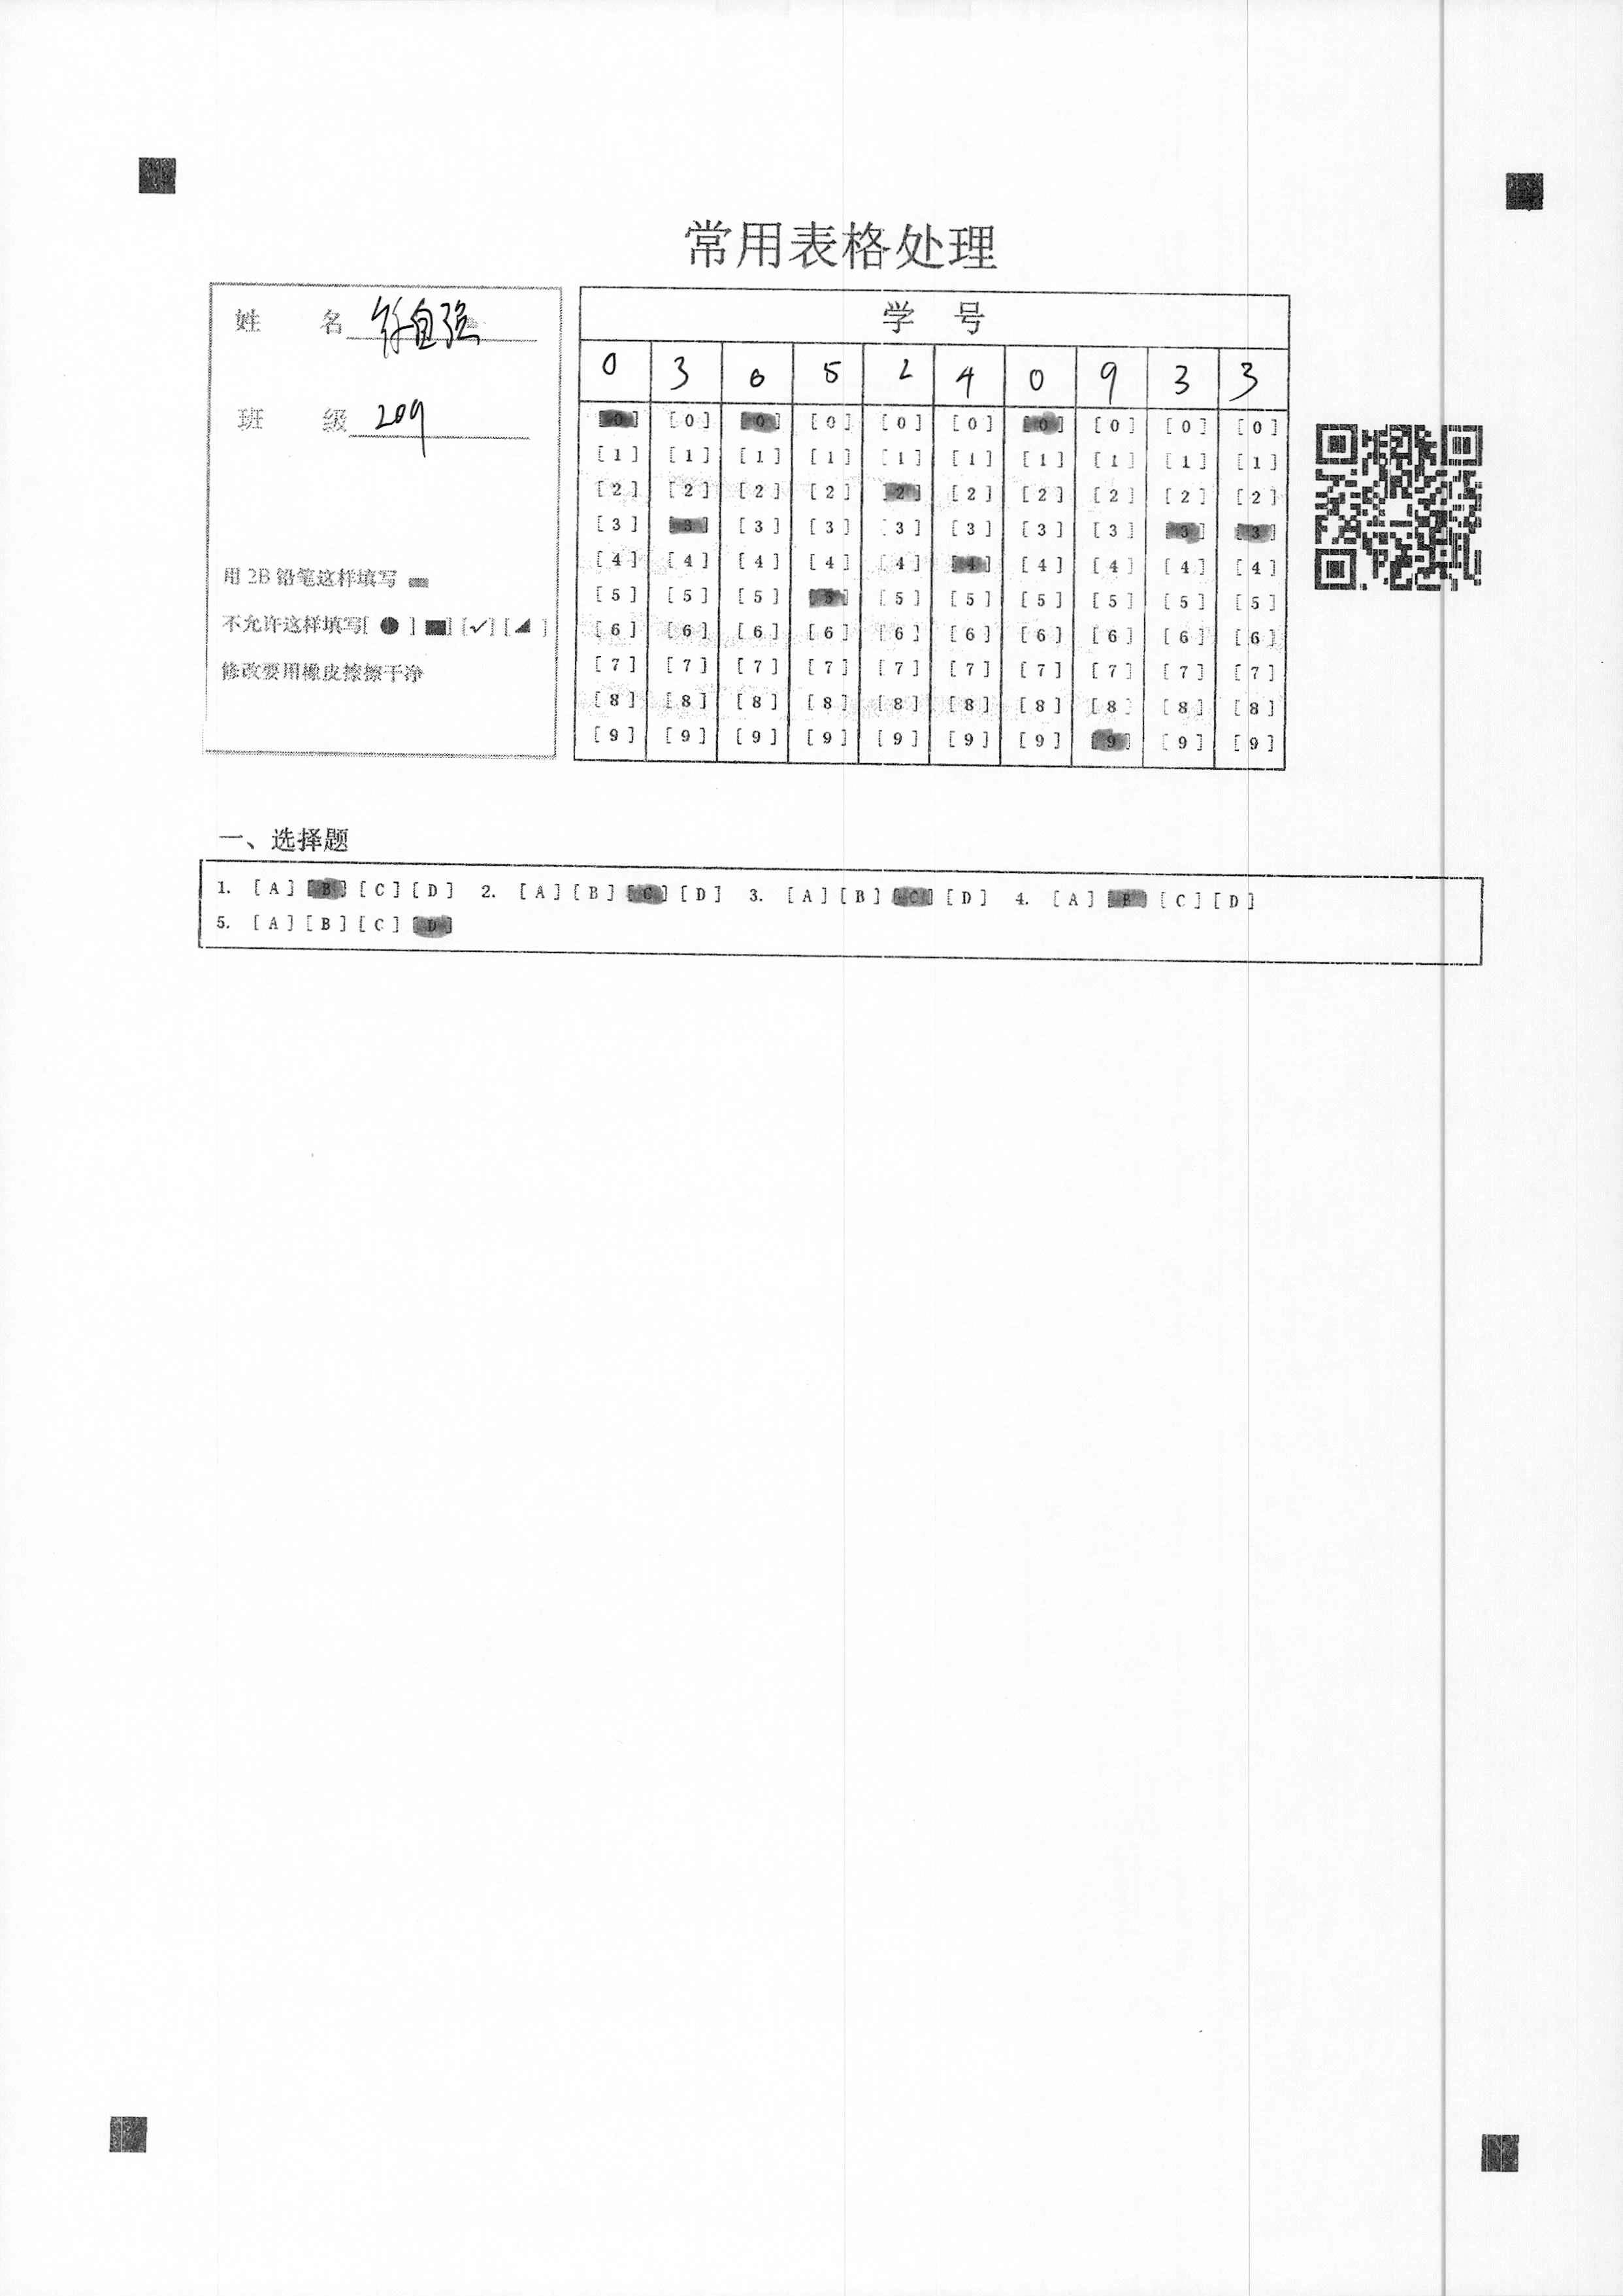 常用表格处理
姓 名 自强
班 级 209
用2B铅笔这样填写
不允许这样填写[ ● ] ■] [✓] [◢ ]
修改要用橡皮擦擦干净
学 号
0 3 0 5 2 4 0 9 3 3
[0] [0] [0] [0] [0] [0] [0] [0] [0] [0]
[1] [1] [1] [1] [1] [1] [1] [1] [1] [1]
[2] [2] [2] [2] [2] [2] [2] [2] [2] [2]
[3] [3] [3] [3] [3] [3] [3] [3] [3] [3]
[4] [4] [4] [4] [4] [4] [4] [4] [4] [4]
[5] [5] [5] [5] [5] [5] [5] [5] [5] [5]
[6] [6] [6] [6] [6] [6] [6] [6] [6] [6]
[7] [7] [7] [7] [7] [7] [7] [7] [7] [7]
[8] [8] [8] [8] [8] [8] [8] [8] [8] [8]
[9] [9] [9] [9] [9] [9] [9] [9] [9] [9]
一、选择题
1. [A] [B] [C] [D] 2. [A] [B] [C] [D] 3. [A] [B] [C] [D] 4. [A] [B] [C] [D]
5. [A] [B] [C] [D]